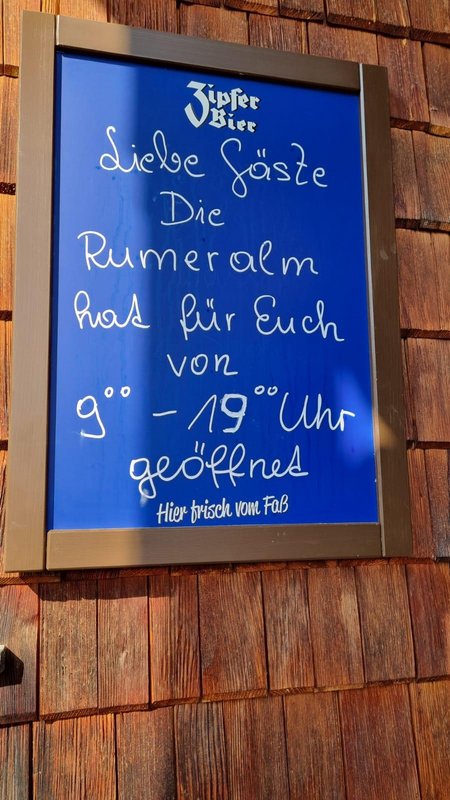 Zipfer
Bier
Liebe Gäste
Die
Rumeralm
hat für Euch
von
9⁰⁰ - 19⁰⁰ Uhr
geöffnet
Hier frisch vom Faß